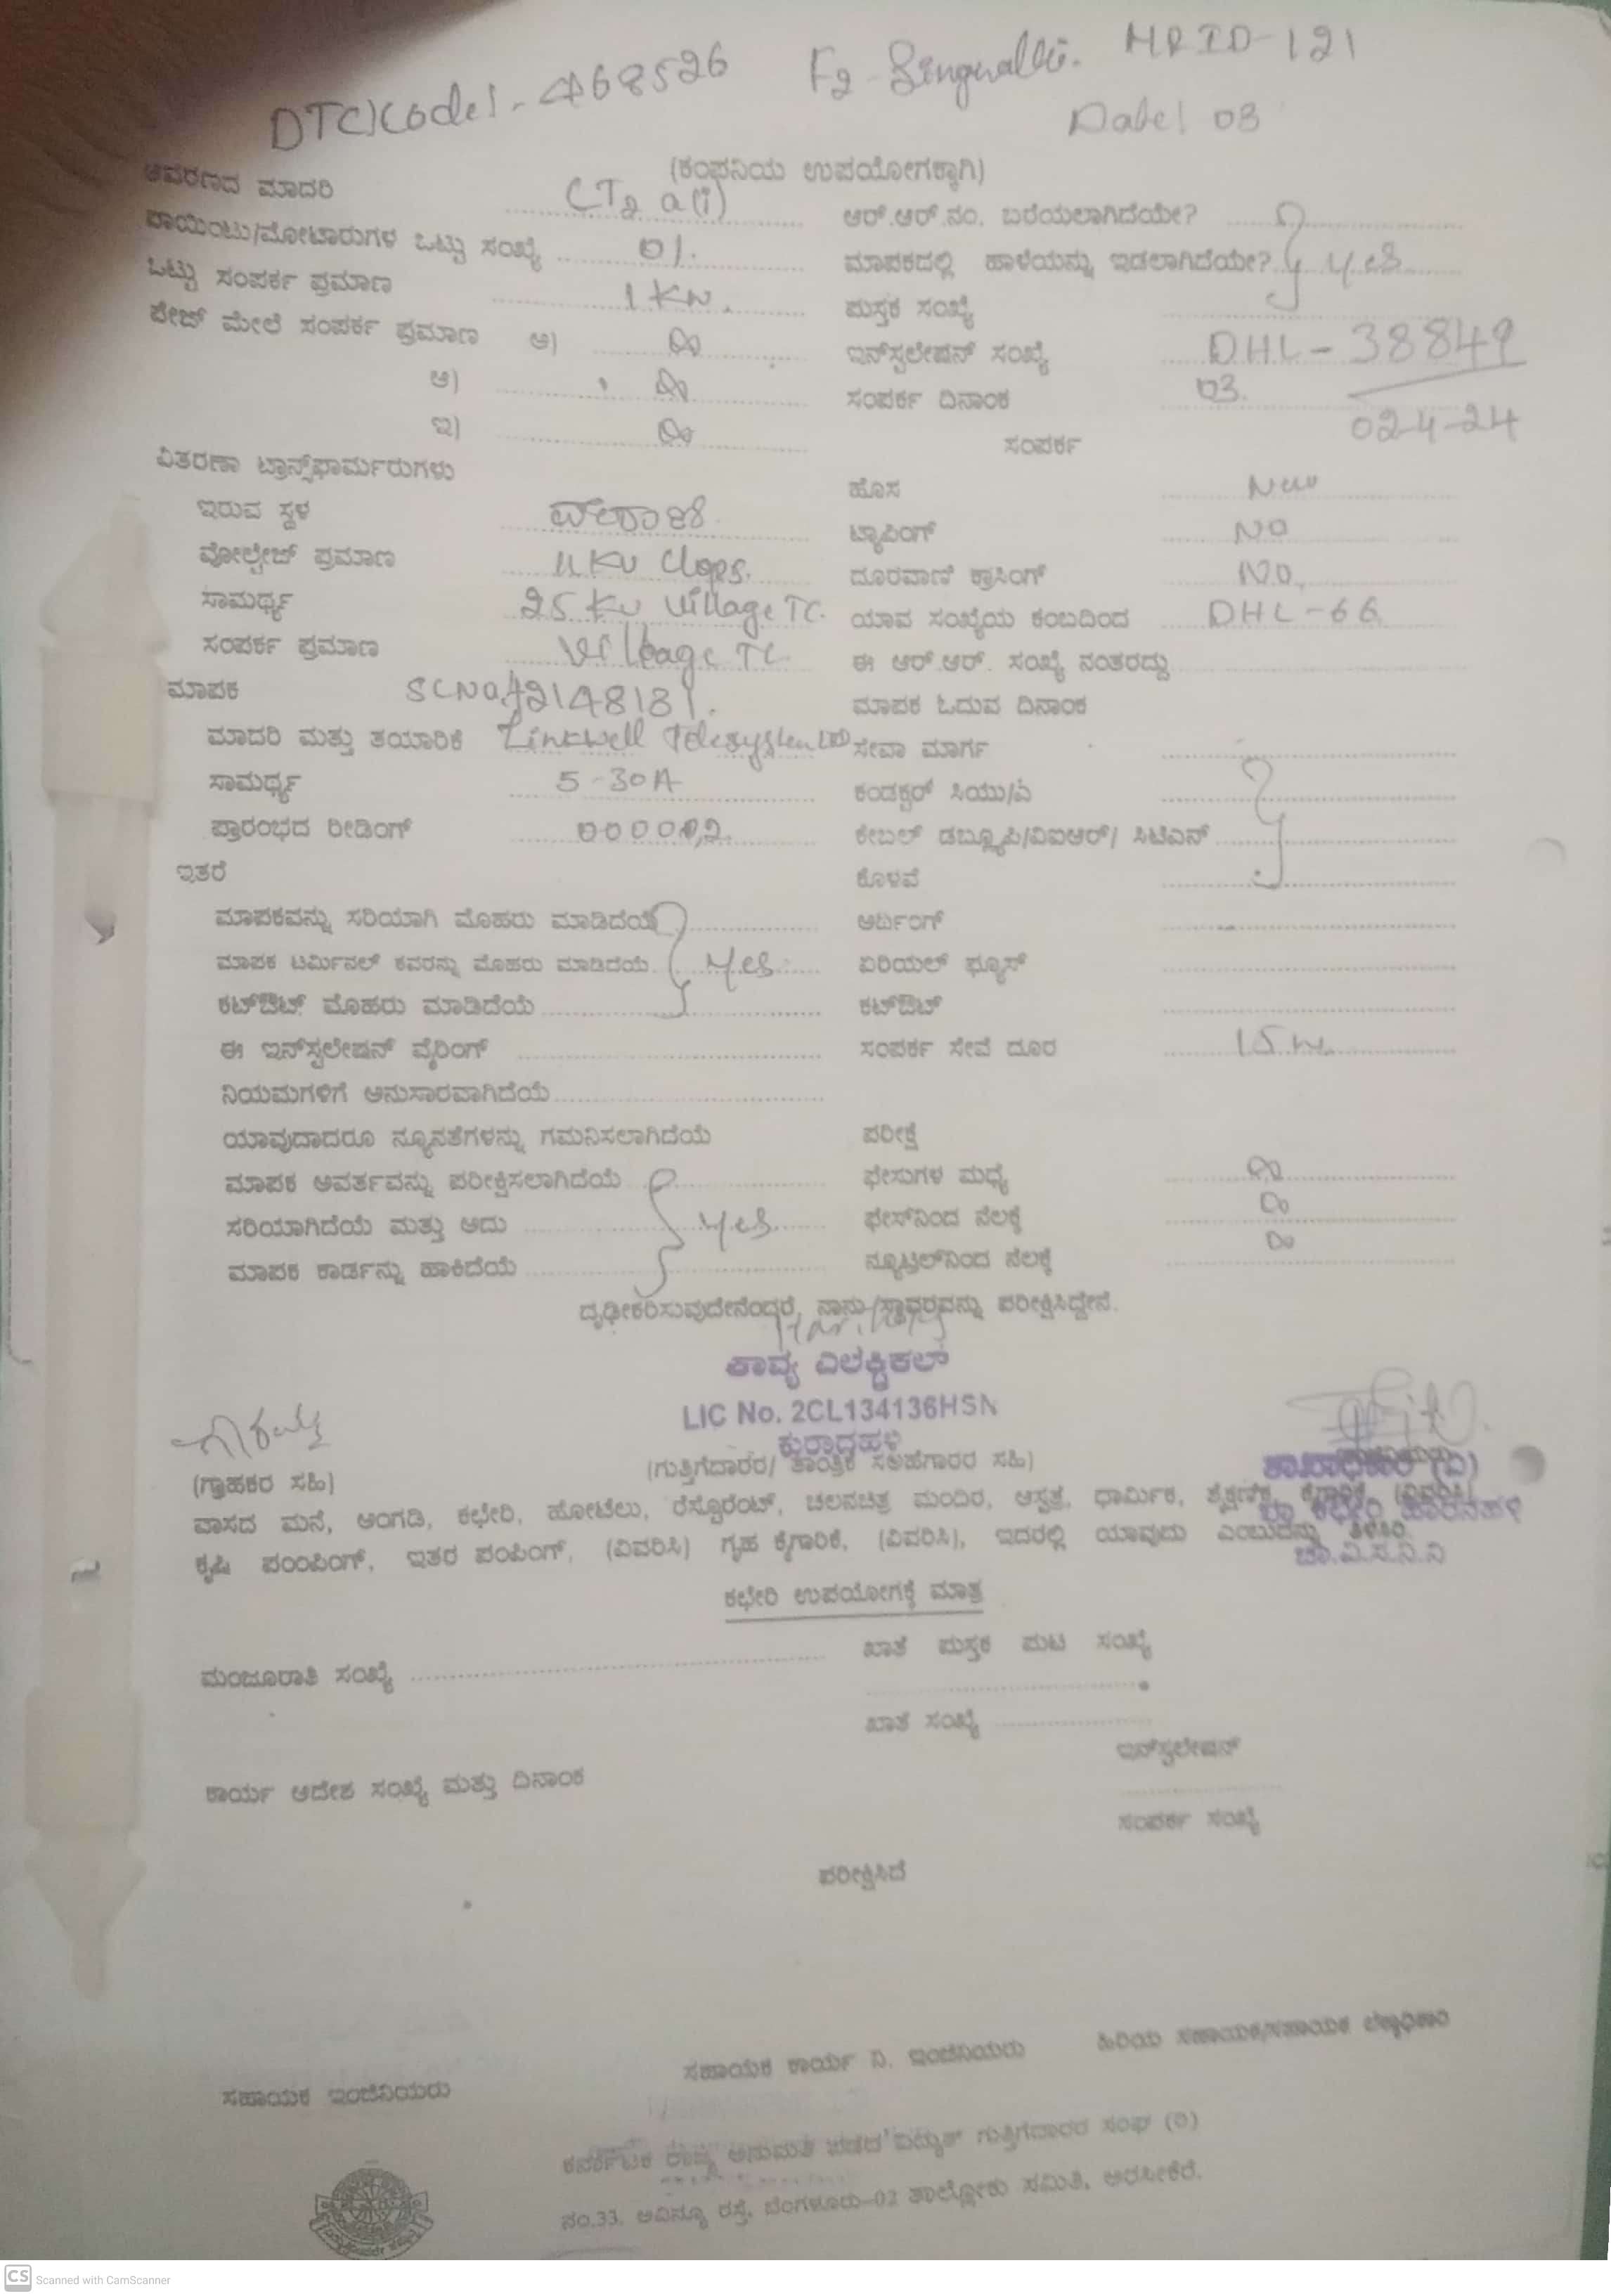 DTC Code:- 468526 F2- Singnalli. MRID-121
Date: 03
(ಕಂಪನಿಯ ಉಪಯೋಗಕ್ಕಾಗಿ)
ಆವರಣದ ಮಾದರಿ CT2 a(i)
ಆರ್.ಆರ್.ನಂ. ಬರೆಯಲಾಗಿದೆಯೇ?
ಪಾಯಿಂಟು/ಮೋಟಾರುಗಳ ಒಟ್ಟು ಸಂಖ್ಯೆ 01.
ಮಾಪಕದಲ್ಲಿ ಹಾಳೆಯನ್ನು ಇಡಲಾಗಿದೆಯೇ? yes
ಒಟ್ಟು ಸಂಪರ್ಕ ಪ್ರಮಾಣ 1 KW.
ಪುಸ್ತಕ ಸಂಖ್ಯೆ
ಪೇಜ್ ಮೇಲೆ ಸಂಪರ್ಕ ಪ್ರಮಾಣ ಅ) Do
ಇನ್‌ಸ್ಟಲೇಷನ್ ಸಂಖ್ಯೆ DHL-38849
ಆ) Do
ಸಂಪರ್ಕ ದಿನಾಂಕ 03. 024-24
ಇ) Do
ಸಂಪರ್ಕ
ವಿತರಣಾ ಟ್ರಾನ್ಸ್‌ಫಾರ್ಮರುಗಳು
ಹೊಸ New
ಇರುವ ಸ್ಥಳ
ಟ್ಯಾಪಿಂಗ್ NO
ವೋಲ್ಟೇಜ್ ಪ್ರಮಾಣ 11 KV
ದೂರವಾಣಿ ಕ್ರಾಸಿಂಗ್ NO.
ಸಾಮರ್ಥ್ಯ 25 KV Village TC.
ಯಾವ ಸಂಖ್ಯೆಯ ಕಂಬದಿಂದ DHL-66
ಸಂಪರ್ಕ ಪ್ರಮಾಣ Village TC
ಈ ಆರ್.ಆರ್. ಸಂಖ್ಯೆ ನಂತರದ್ದು
ಮಾಪಕ SCNO.A2148181.
ಮಾಪಕ ಓದುವ ದಿನಾಂಕ
ಮಾದರಿ ಮತ್ತು ತಯಾರಿಕೆ Linkwell Telesystem LTD
ಸೇವಾ ಮಾರ್ಗ
ಸಾಮರ್ಥ್ಯ 5-30A
ಕಂಡಕ್ಟರ್ ಸಿಯು/ಎ
ಪ್ರಾರಂಭದ ರೀಡಿಂಗ್
ಕೇಬಲ್ ಡಬ್ಲ್ಯೂಪಿ/ವಿಐಆರ್/ ಸಿಟಿಎಸ್
ಇತರೆ
ಕೊಳವೆ
ಮಾಪಕವನ್ನು ಸರಿಯಾಗಿ ಮೊಹರು ಮಾಡಿದೆಯೆ
ಅರ್ಥಿಂಗ್
ಮಾಪಕ ಟರ್ಮಿನಲ್ ಕವರನ್ನು ಮೊಹರು ಮಾಡಿದೆಯೆ yes
ಏರಿಯಲ್ ಫ್ಯೂಸ್
ಕಟ್‌ಔಟ್ ಮೊಹರು ಮಾಡಿದೆಯೆ
ಕಟ್‌ಔಟ್
ಈ ಇನ್‌ಸ್ಟಲೇಷನ್ ವೈರಿಂಗ್
ಸಂಪರ್ಕ ಸೇವೆ ದೂರ 15 m
ನಿಯಮಗಳಿಗೆ ಅನುಸಾರವಾಗಿದೆಯೆ
ಯಾವುದಾದರೂ ನ್ಯೂನತೆಗಳನ್ನು ಗಮನಿಸಲಾಗಿದೆಯೆ
ಪರೀಕ್ಷೆ
ಮಾಪಕ ಆವರ್ತವನ್ನು ಪರೀಕ್ಷಿಸಲಾಗಿದೆಯೆ
ಫೇಸುಗಳ ಮಧ್ಯೆ Do
ಸರಿಯಾಗಿದೆಯೆ ಮತ್ತು ಅದು yes
ಫೇಸ್‌ನಿಂದ ನೆಲಕ್ಕೆ Do
ಮಾಪಕ ಕಾರ್ಡನ್ನು ಹಾಕಿದೆಯೆ
ನ್ಯೂಟ್ರಲ್‌ನಿಂದ ನೆಲಕ್ಕೆ Do
ದೃಢೀಕರಿಸುವುದೇನೆಂದರೆ, ನಾನು ಸ್ಥಾವರವನ್ನು ಪರೀಕ್ಷಿಸಿದ್ದೇನೆ.
ಕಾವ್ಯ ಎಲೆಕ್ಟ್ರಿಕಲ್
LIC No. 2CL134136HSN
ಕುರಾದಹಳ್ಳಿ
(ಗ್ರಾಹಕರ ಸಹಿ)
(ಗುತ್ತಿಗೆದಾರರ/ ತಾಂತ್ರಿಕ ಸಲಹೆಗಾರರ ಸಹಿ)
ಶಾಖಾಧಿಕಾರಿ (ವಿ)
ವಾಸದ ಮನೆ, ಅಂಗಡಿ, ಕಛೇರಿ, ಹೋಟೆಲು, ರೆಸ್ಟೊರೆಂಟ್, ಚಲನಚಿತ್ರ ಮಂದಿರ, ಆಸ್ಪತ್ರೆ, ಧಾರ್ಮಿಕ, ಶೈಕ್ಷಣಿಕ, ಕೈಗಾರಿಕೆ, (ವಿವರಿಸಿ)
ಕೃಷಿ ಪಂಪಿಂಗ್, ಇತರ ಪಂಪಿಂಗ್, (ವಿವರಿಸಿ) ಗೃಹ ಕೈಗಾರಿಕೆ, (ವಿವರಿಸಿ), ಇದರಲ್ಲಿ ಯಾವುದು ಎಂಬುದನ್ನು ತಿಳಿಸಿರಿ.
ಚಾ.ವಿ.ಸ.ನಿ.ನಿ
ಕಛೇರಿ ಉಪಯೋಗಕ್ಕೆ ಮಾತ್ರ
ಮಂಜೂರಾತಿ ಸಂಖ್ಯೆ
ಖಾತೆ ಪುಸ್ತಕ ಪುಟ ಸಂಖ್ಯೆ
ಖಾತೆ ಸಂಖ್ಯೆ
ಇನ್‌ಸ್ಟಲೇಷನ್
ಕಾರ್ಯ ಆದೇಶ ಸಂಖ್ಯೆ ಮತ್ತು ದಿನಾಂಕ
ಸಂಪರ್ಕ ಸಂಖ್ಯೆ
ಪರೀಕ್ಷಿಸಿದೆ
ಸಹಾಯಕ ಇಂಜಿನಿಯರು
ಸಹಾಯಕ ಕಾರ್ಯ ನಿ. ಇಂಜಿನಿಯರು
ಹಿರಿಯ ಸಹಾಯಕ/ಸಹಾಯಕ ಲೆಕ್ಕಾಧಿಕಾರಿ
ಕರ್ನಾಟಕ ರಾಜ್ಯ ಅನುಮತಿ ಪಡೆದ ವಿದ್ಯುತ್ ಗುತ್ತಿಗೆದಾರರ ಸಂಘ (ರಿ)
ನಂ.33, ಅವಿನ್ಯೂ ರಸ್ತೆ, ಬೆಂಗಳೂರು-02 ತಾಲ್ಲೋಕು ಸಮಿತಿ, ಅರಸೀಕೆರೆ.
CS Scanned with CamScanner